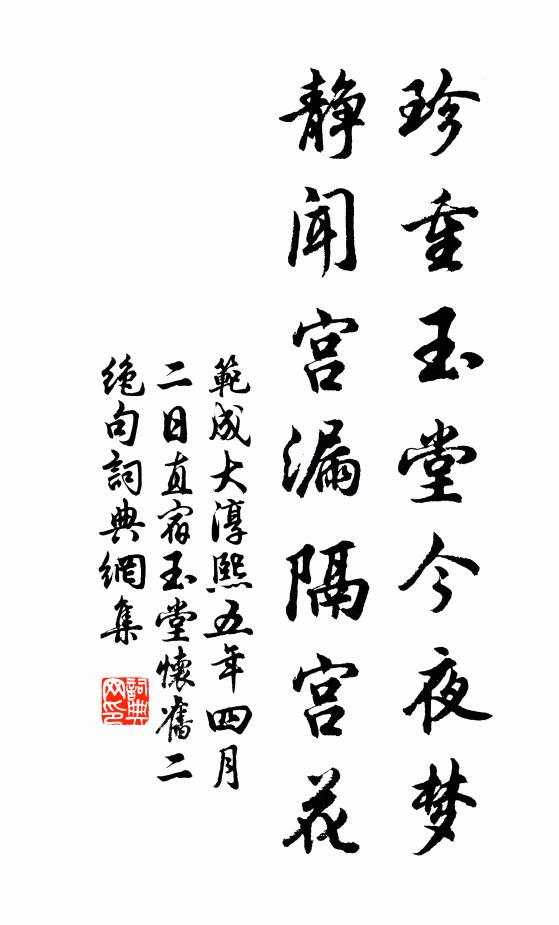 珍重玉堂今夜梦
静闻宫漏隔宫花
範成大淳熙五年四月
二日直宿玉堂懷舊二
絶句詞典網集
詞典网印